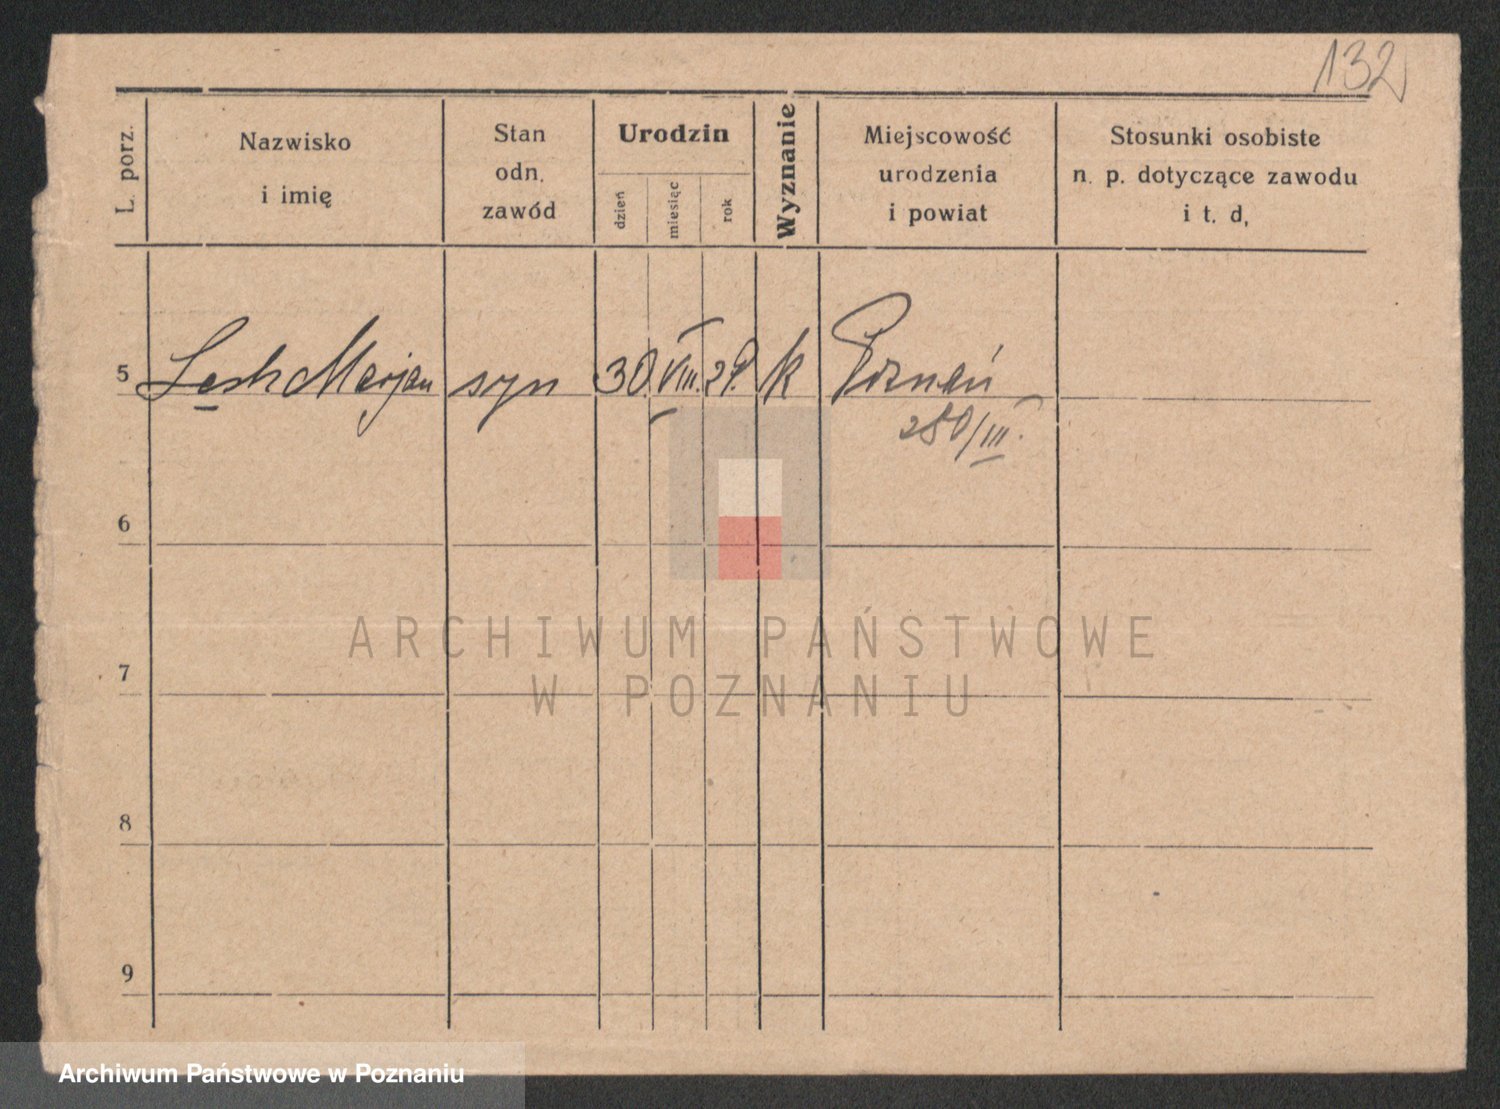 132
L. porz.
Nazwisko
i imię
Stan
odn.
zawód
Urodzin
dzień
miesiąc
rok
Wyznanie
Miejscowość
urodzenia
i powiat
Stosunki osobiste
n. p. dotyczące zawodu
i t. d,
5 Lech Marjan syn 30. VIII. 29. k Poznań
280/III.
6
7
8
9
ARCHIWUM PAŃSTWOWE
W POZNANIU
Archiwum Państwowe w Poznaniu